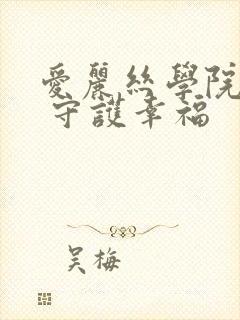 愛麗絲學院
守護幸福
吴梅